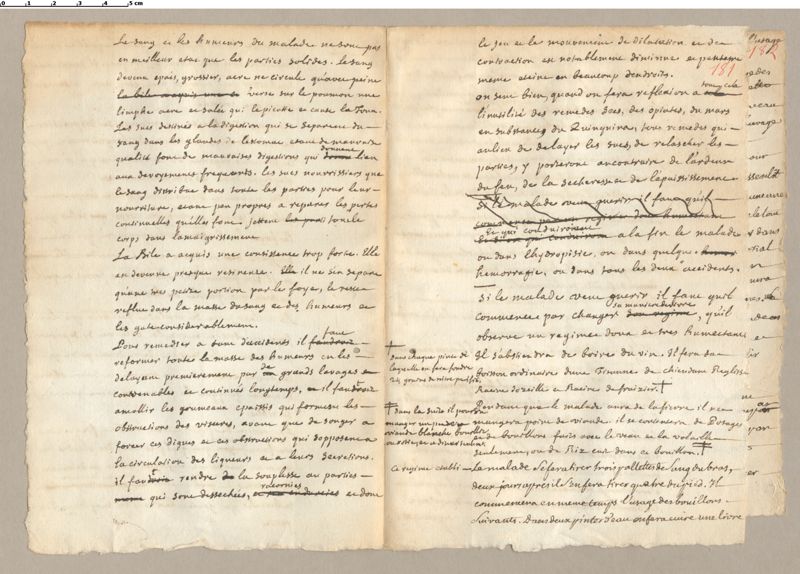 Le sang et les humeurs du malade ne sont pas
en meilleur etat que les parties solides. Le sang
devenu epais, grossier, acre ne circule qu'avec peine
la bile a aquis une co verse sur le poumon une
limphe acre et salée qui le picotte et cause la Toux.
Les sucs destinés a la digestion qui se separent du
sang dans les glandes de lestomac etant de mauvaise
qualité font de mauvaises digestions qui donnent lieu
aux devoyements frequents. les sucs nourrissiers que
le sang distribue dans toutes les parties pour leur
nourriture, etant peu propres a reparer les pertes
continuelles quelles font jettent tout le
corps dans lamaigrissement
La Bile a acquis une consistance trop forte. Elle
en devenue presque resineuse. il ne s'en separe
qu'une tres petite portion par le foye, le reste
reflue dans la masse du sang et des humeurs et
les gate considerablement.
Pour remedier a tant daccidents il faut
reformer toute la masse des humeurs en les
delayant premierement par de grands lavages
convenables et continués longtemps, il faut
amollir les grumeaux epaissis qui forment les
obstructions des visceres, avant que de songer a
forcer ces digues et ces obstructions qui s'opposent a
la circulation des liqueurs et a leurs secretions.
il faut rendre la souplesse au parties
qui sont dessechées, racornies et dont
le jeu et le mouvement de dilatation et de
contraction est notablement diminué et
meme eteint en beaucoup dendroits. 181
on sent bien, quand on fera reflexion a tout cela
l'inutilité des remedes secs, des opiates, du mars
en substance, du Quinquina, tous remedes qui
au lieu de delayer les sucs, de relascher les
parties, y porteront au contraire de l'ardeur
du feu, de la secheresse de lepaississement
si le malade veut guerir il faut quil
commence par un regime doux humectant
Ce qui conduiroient a la fin le malade
ou dans l'hydropisie, ou dans quelque
hemorragie, ou dans tous les deux accidents.
Si le malade veut guerir il faut quil
commence par changer sa maniere de vivre, qu'il
observe un regime doux et tres humectant
Il s'abstiendra de boire du vin. Il fera sa
boisson ordinaire dune Tisanne de chiendant Reglisse
Racine dozeille et Racine de fraizier.
dans chaque pinte de
laquelle on fera fondre
24 grains de nitre purifié
Pendant que le malade aura de la fievre il ne
mangera point de viande. il se contentera de Potages
et de bouillons faits avec le veau et la volaille
seulement, ou de Riz cuit dans ce bouillon.
dans la suite il pourra
manger un peu de
viande blanche bouillie
ou rotie, et a diner seulement
Ce regime etabli
le malade se fera tirer trois pallettes de sang du bras,
deux jours après il s'en fera tirer quatre du pied. Il
commencera en meme temps l'usage des bouillons
suivants. Dans deux pintes d'eau on fera cuire une livre
l'usage
182